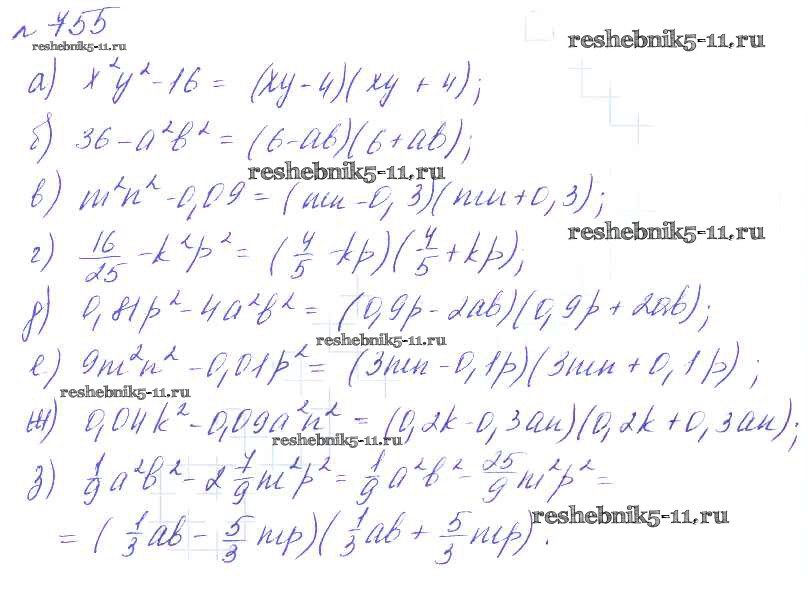 № 755
reshebnik5-11.ru
reshebnik5-11.ru
а) x²y² - 16 = (xy - 4)(xy + 4);
б) 36 - a²b² = (6 - ab)(6 + ab);
reshebnik5-11.ru
в) m²n² - 0,09 = (mn - 0,3)(mn + 0,3);
reshebnik5-11.ru
г) 16/25 - k²p² = (4/5 - kp)(4/5 + kp);
д) 0,81p² - 4a²b² = (0,9p - 2ab)(0,9p + 2ab);
reshebnik5-11.ru
е) 9m²n² - 0,01p² = (3mn - 0,1p)(3mn + 0,1p);
reshebnik5-11.ru
ж) 0,04k² - 0,09a²n² = (0,2k - 0,3an)(0,2k + 0,3an);
reshebnik5-11.ru
з) 1/9 a²b² - 2 7/9 m²p² = 1/9 a²b² - 25/9 m²p² =
reshebnik5-11.ru
= (1/3 ab - 5/3 mp)(1/3 ab + 5/3 mp).